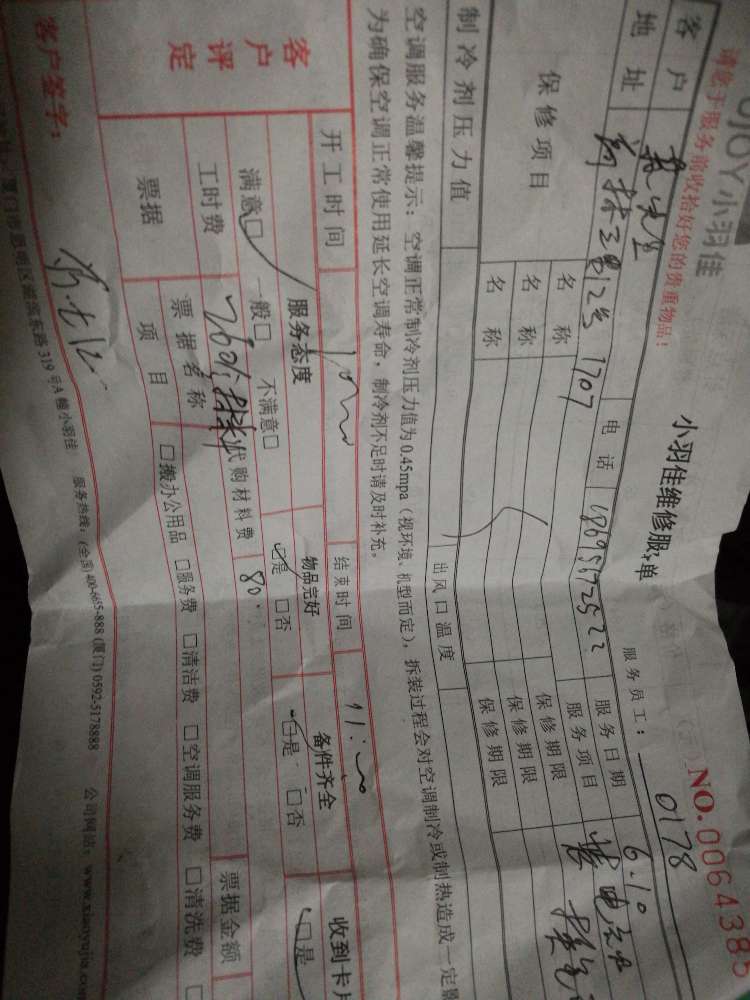 JOY小羽佳
请您于服务前收拾好您的贵重物品！
小羽佳维修服务单
NO.0064385
服务员工： 0178
客户
地址 1707
电话 18695672522
服务日期 6.10
服务项目
保修项目
名称 保修期限
名称 保修期限
名称 保修期限
制冷剂压力值 出风口温度
空调服务温馨提示：空调正常制冷剂压力值为0.45mpa（视环境、机型而定），拆装过程会对空调制冷或制热造成一定
为确保空调正常使用延长空调寿命，制冷剂不足时请及时补充。
客户评定
开工时间 结束时间
服务态度 物品完好 备件齐全 收到卡片
满意□ 一般□ 不满意□ □是 □否 □是 □否 □是
工时费 代购材料费 80.
票据 票据名称 票据金额
项目 □搬办公用品 □服务费 □清洁费 □空调服务费 □清洗费 □
客户签字：
厦门市思明区湖滨东路319号A幢小羽佳 服务热线：(全国)400-6655-888 (厦门) 0592-5178888 公司网站：www.xiaoyujia.com